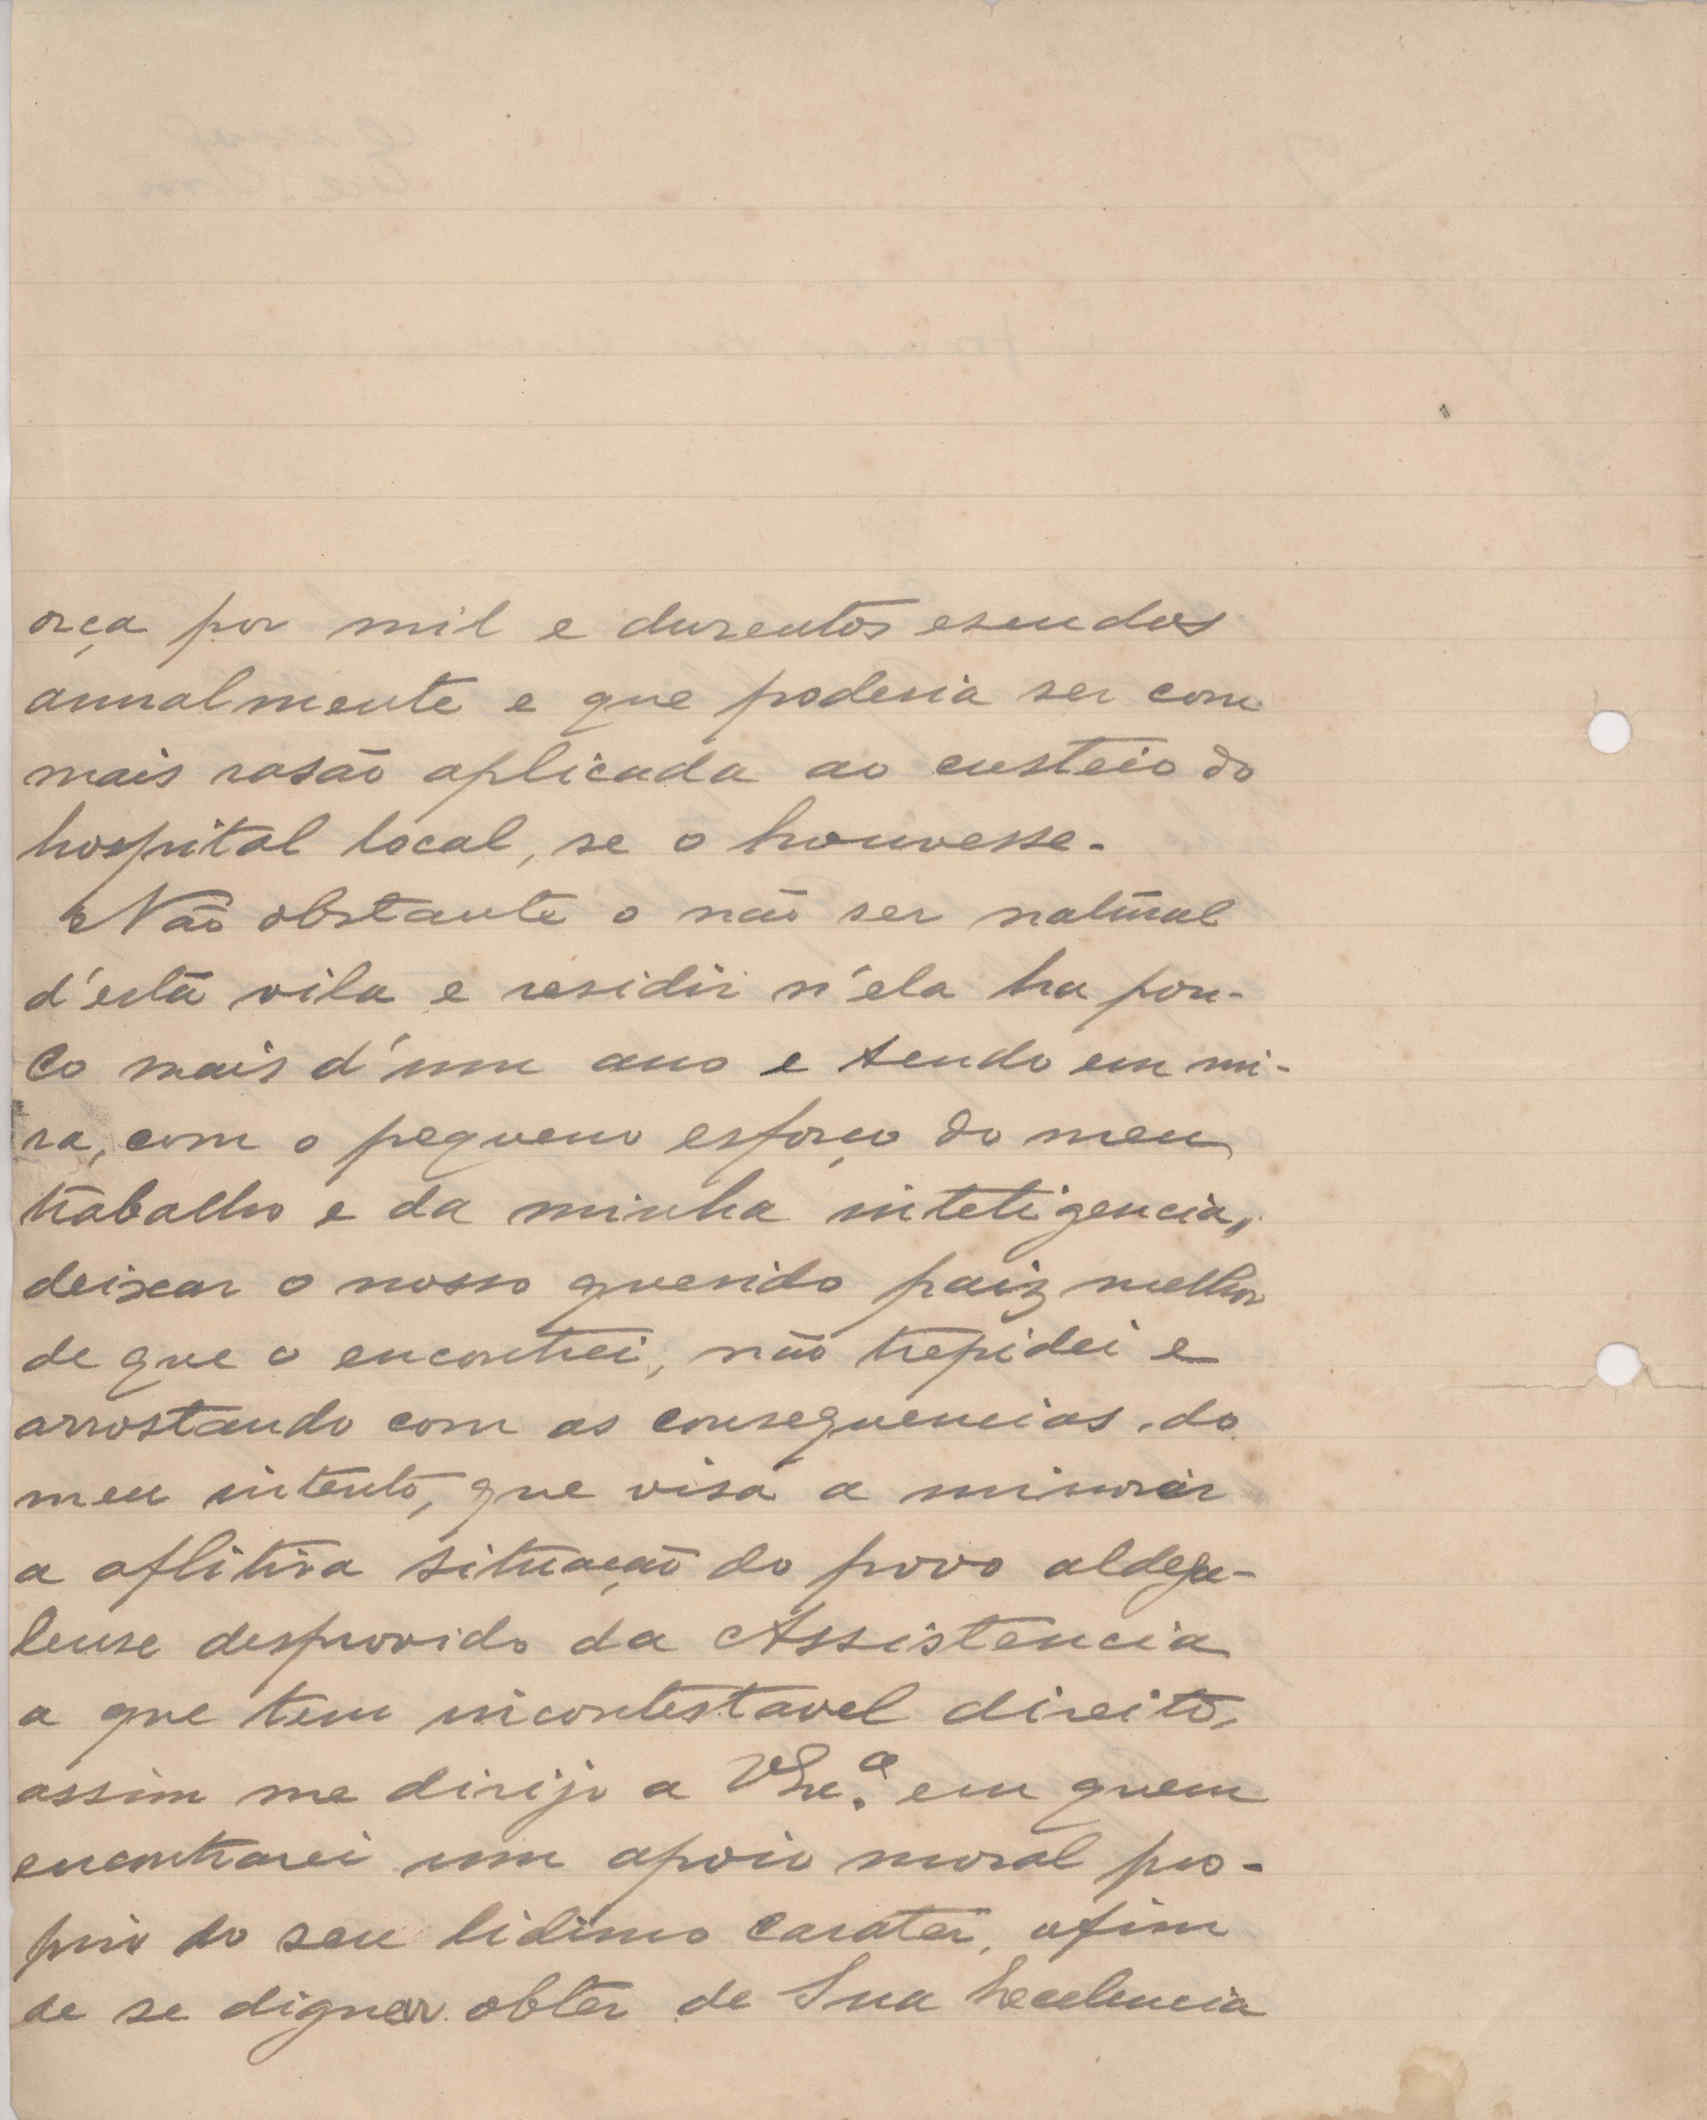 orça por mil e duzentos escudos
annalmente e que poderia ser com
mais rasão aplicada ao custeio do
hospital local, se o houvesse.
Não obstante o não ser natural
d'esta vila e residir n'ela ha pou-
co mais d'um ano e tendo em mi-
ra, com o pequeno esforço do meu
trabalho e da minha inteligencia,
deixar o nosso querido paiz melhor
de que o encontrei, não trepidei e
arrostando com as consequencias do
meu intento, que visa a minorar
a aflitiva situação do povo aldega-
lense desprovido da Assistencia
a que tem incontestavel direito,
assim me dirijo a VExc.ª em quem
encontrarei um apoio moral pro-
prio do seu lidimo carater, afim
de se dignar obter de Sua Excelencia